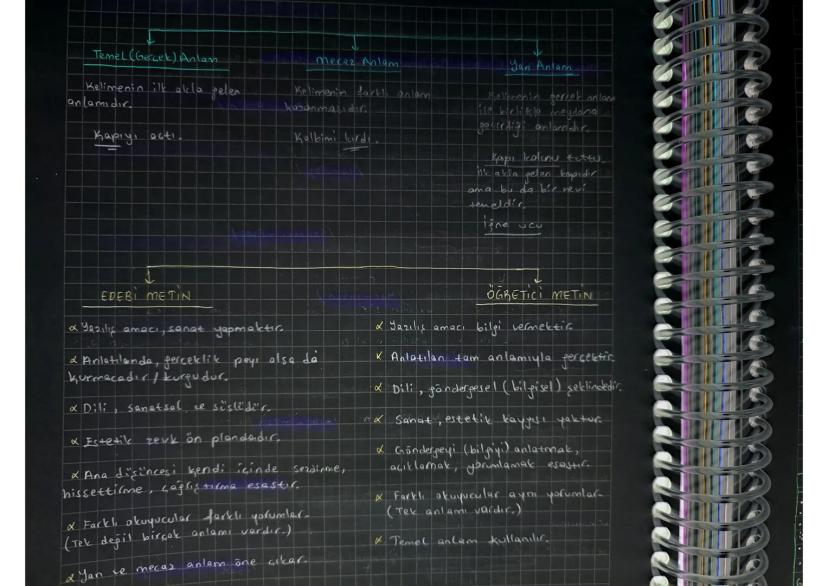 Temel (Gerçek) Anlam
Kelimenin ilk akla gelen
anlamıdır.
Kapıyı açtı.
Mecaz Anlam
Kelimenin farklı anlam
kazanmasıdır.
Kalbimi kırdı.
Yan Anlam
Kelimenin gerçek anlamı
ile birlikte meydana
getirdiği anlamıdır.
Kapı kolunu tuttu.
ilk akla gelen kapıdır
ama bu da bir nevi
temeldir.
İğne ucu
EDEBİ METİN
α Yazılış amacı, sanat yapmaktır.
α Anlatılanda, gerçeklik payı olsa da
kurmacadır / kurgudur.
α Dili, sanatsal ve süslüdür.
α Estetik zevk ön plandadır.
α Ana düşüncesi kendi içinde sezdirme,
hissettirme, çağrıştırma esastır.
α Farklı okuyucular farklı yorumlar.
(Tek değil birçok anlamı vardır.)
α Yan ve mecaz anlam öne çıkar.
ÖĞRETİCİ METİN
α Yazılış amacı bilgi vermektir.
α Anlatılan tam anlamıyla gerçektir.
α Dili, göndergesel (bilgisel) şeklindedir.
α Sanat, estetik kaygısı yoktur.
α Göndergeyi (bilgiyi) anlatmak,
açıklamak, yorumlamak esastır.
α Farklı okuyucular aynı yorumlar.
(Tek anlamı vardır.)
α Temel anlam kullanılır.